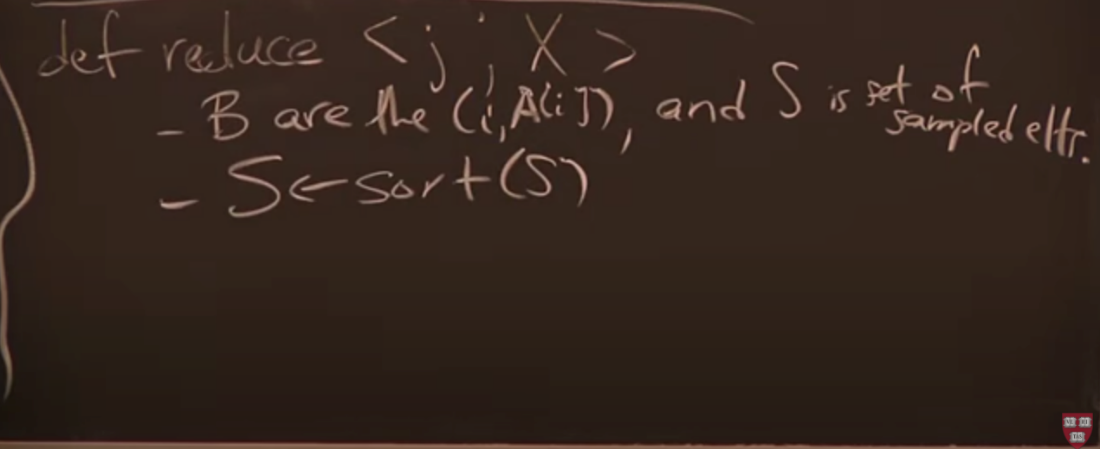 def reduce <j; X>
- B are the (i, A[i]), and S is set of sampled eltr.
- S ← sort(S)